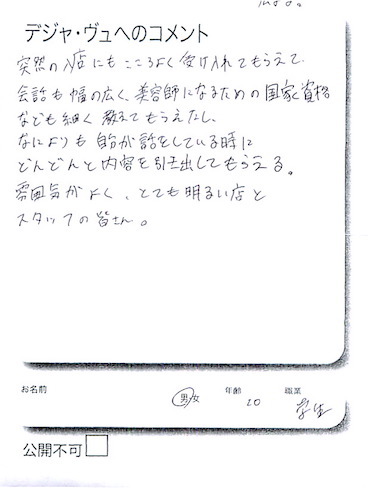 デジャ・ヴュへのコメント
突然の入店にもこころよく受け入れてもらえて
会話も幅の広く、美容師になるための国家資格
なども細く教えてもらえたし、
なによりも自分が話をしている時に
どんどんと内容を引き出してもらえる。
雰囲気がよく、とても明るい店と
スタッフの皆さん。
お名前 男女 年齢 20 職業 学生
公開不可